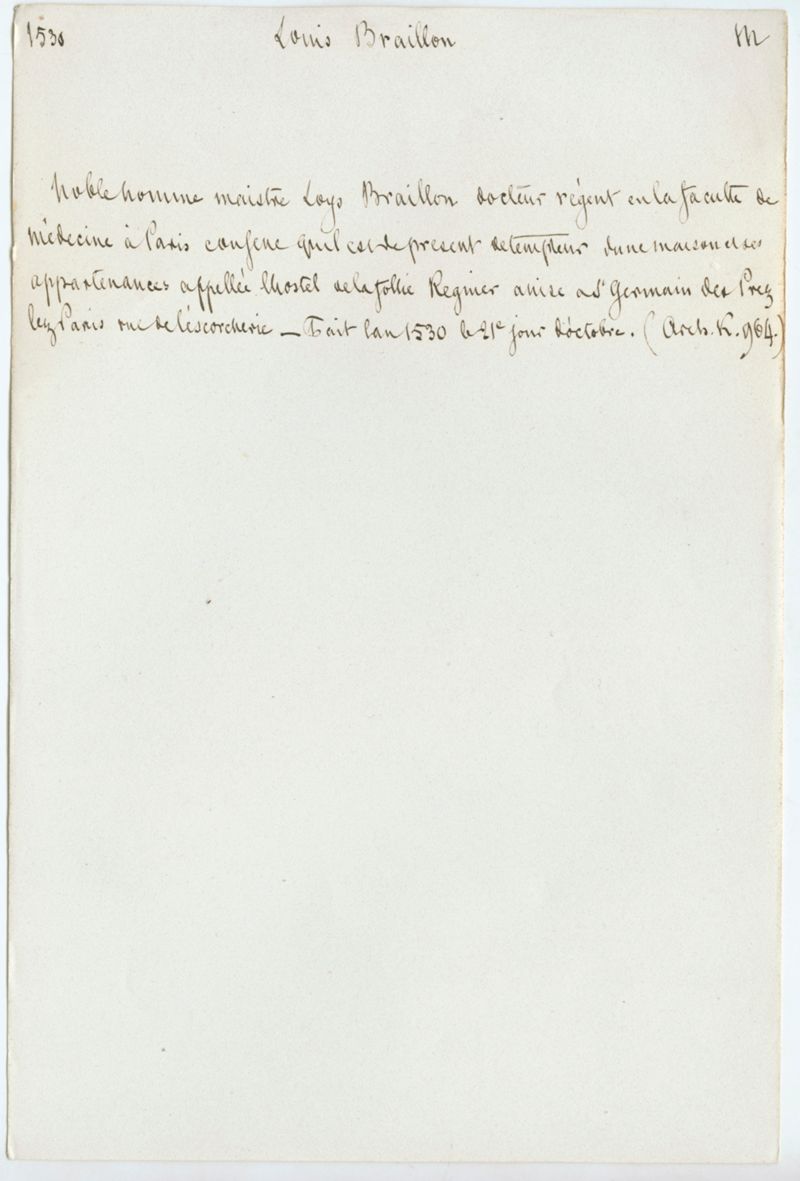 1530 Louis Braillon M
Noble homme maistre Loys Braillon docteur régent en la faculte de
médecine à Paris confesse quil est de present detempteur dune maison et ses
appartenances appellée lhostel de la follie Regnier assize a St Germain des Prez
lez Paris rue de l'éscorcherie — Fait lan 1530 le 21e jour d'octobre. (Arch. K. 964.)